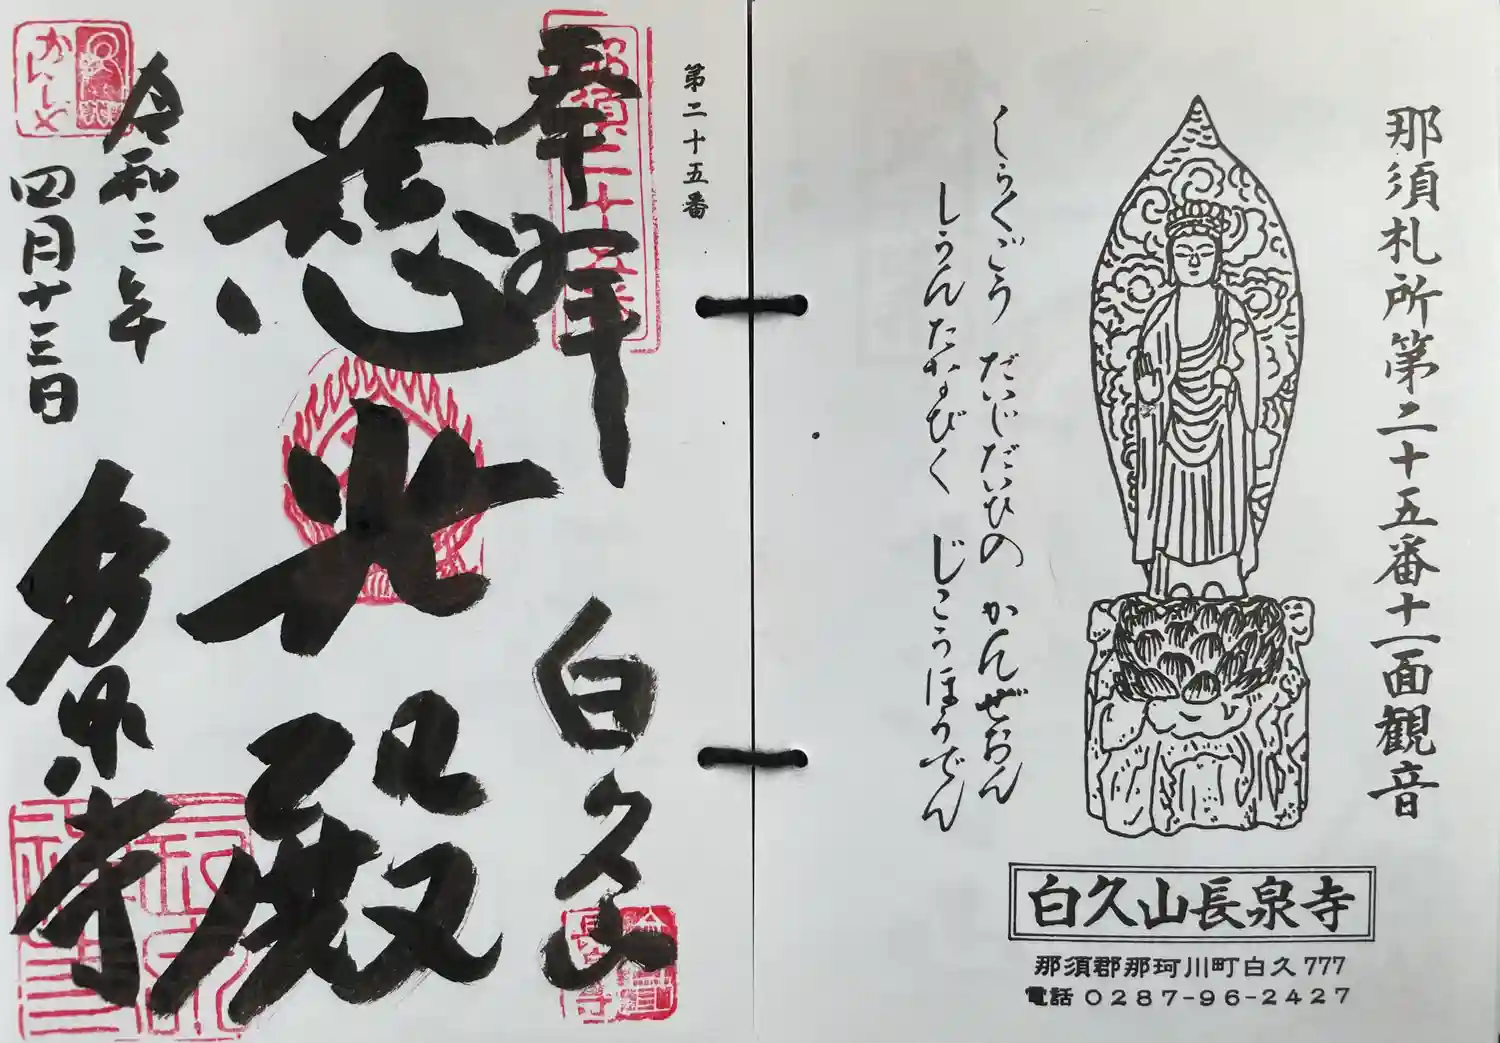 那須札所第二十五番十一面観音
しらくごう だいじだいひの かんぜおん
しうんたなびく じこうほうでん
白久山長泉寺
那須郡那珂川町白久777
電話 0287-96-2427
第二十五番
奉拝
白久山
慈悲殿
令和三年
四月十三日
長泉寺
那須二十五番